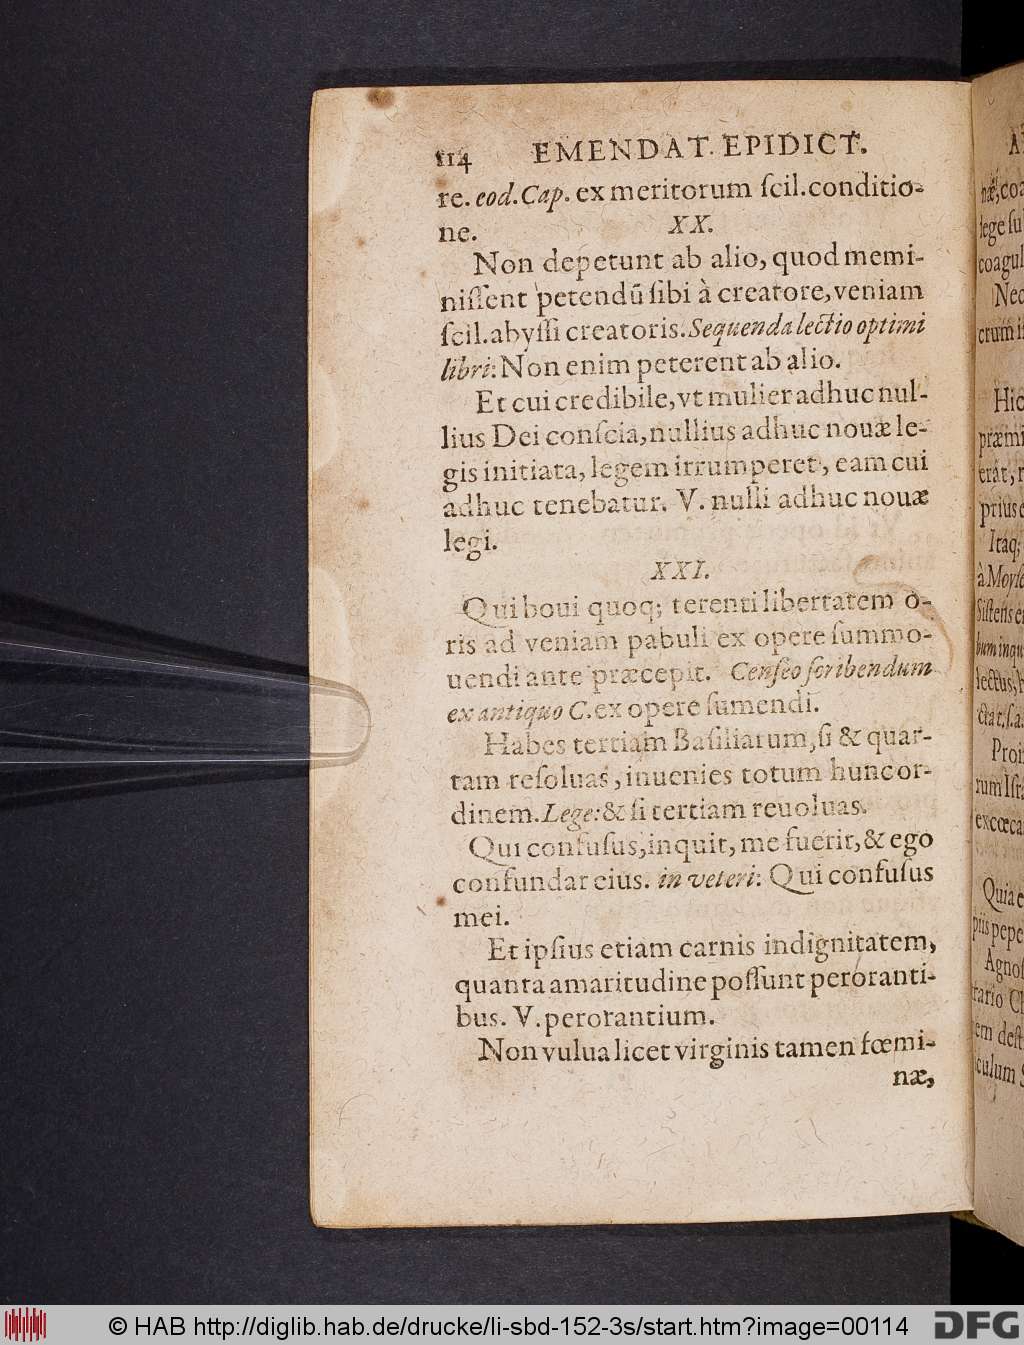 114 EMENDAT. EPIDICT.
re. eod. Cap. ex meritorum ſcil. conditio-
ne.
XX.
Non depetunt ab alio, quod memi-
niſſent petendū ſibi à creatore, veniam
ſcil. abyſſi creatoris. Sequenda lectio optimi
libri: Non enim peterent ab alio.
Et cui credibile, vt mulier adhuc nul-
lius Dei conſcia, nullius adhuc nouæ le-
gis initiata, legem irrumperet, eam cui
adhuc tenebatur. V. nulli adhuc nouæ
legi.
XXI.
Qui boui quoq; terenti libertatem o-
ris ad veniam pabuli ex opere ſummo-
uendi ante præcepit. Cenſeo ſcribendum
ex antiquo C. ex opere ſumendi.
Habes tertiam Baſiliarum, ſi & quar-
tam reſoluas, inuenies totum hunc or-
dinem. Lege: & ſi tertiam reuoluas.
Qui confuſus, inquit, me fuerit, & ego
confundar eius. in veteri: Qui confuſus
mei.
Et ipſius etiam carnis indignitatem,
quanta amaritudine poſſunt peroranti-
bus. V. perorantium.
Non vulua licet virginis tamen fœmi-
næ,
næ, coa
lege ſu
coagul
Nec
crum i
Hic
præmi
erat, r
prius e
Itaq;
à Moyſe
Siſtens e
bum inqu
lectus, h
ctat. ſ. a.
Proi
rum Iſra
excœca
Quia e
piis pepe
Agnoſ
rario C
em deſt
culum S
© HAB http://diglib.hab.de/drucke/li-sbd-152-3s/start.htm?image=00114
DFG